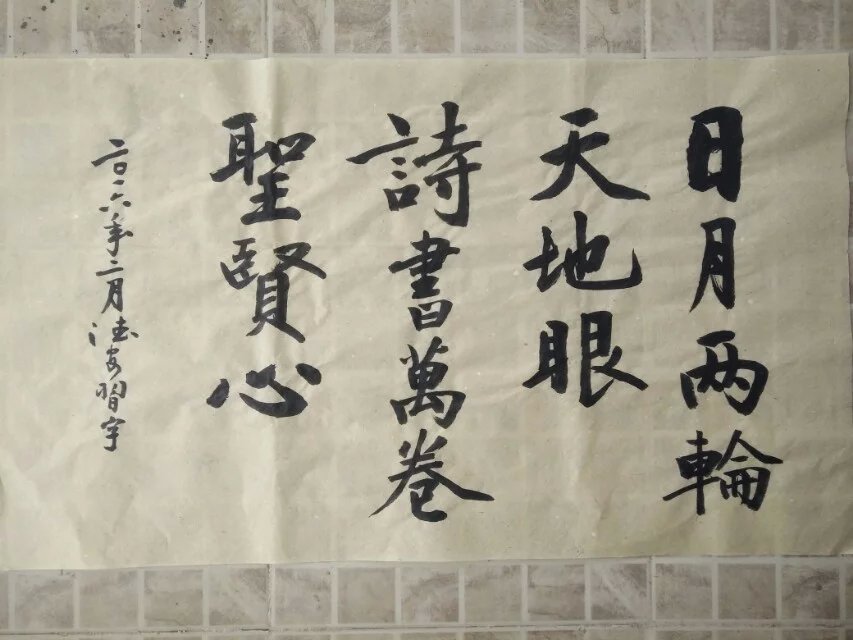 日月两輪
天地眼
詩書萬卷
聖賢心
二〇一六年二月法安習字